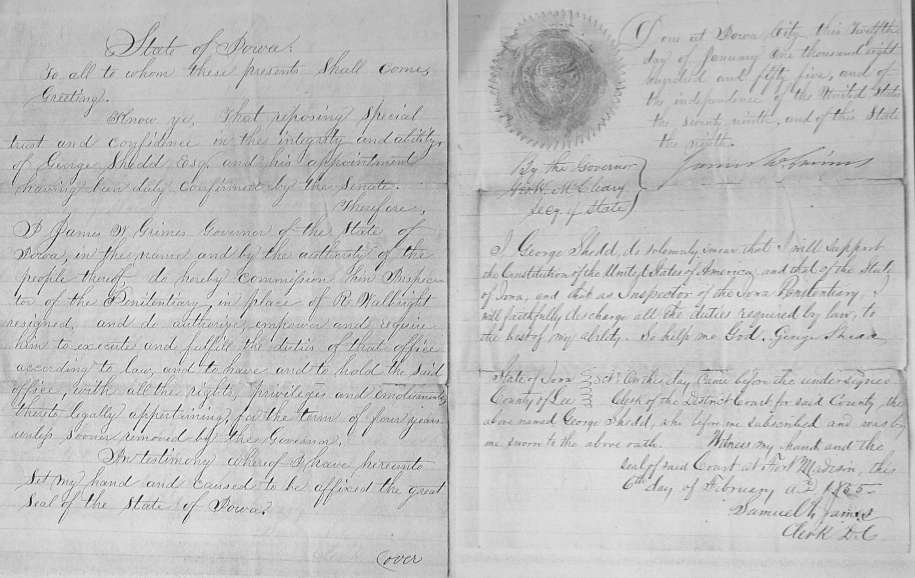 State of Iowa.
To all to whom these presents Shall Come,
Greeting.
Know ye, That reposing Special
trust and Confidence in the integrity and ability,
of George Shedd Esq. and his appointment
having been duly Confirmed by the Senate.
Therefore,
I James W. Grimes Governor of the State of
Iowa, in the name and by the authority of the
people thereof, do hereby Commission him Inspec-
tor of the Penitentiary, in place of R.
resigned, and do authorize, empower and require
him to execute and fulfill the duties of that office
according to law, and to have and to hold the said
office, with all the rights, privileges and emoluments
thereto legally appertaining, for the term of four years
unless sooner removed by the Governor.
In testimony whereof I have hereunto
Set my hand and Caused to be affixed the great
Seal of the State of Iowa.
(over
Done at Iowa City this Twelfth
day of January One thousand eight
hundred and fifty five, and of
the independence of the United States
the seventy ninth, and of this State
the ninth.
James W. Grimes
By the Governor
Geo. W. McCleary
Secy of State
I George Shedd, do solemnly swear that I will support
the Constitution of the United States of America, and that of the State
of Iowa, and that as Inspector of the Iowa Penitentiary, I
will faithfully discharge all the duties required by law, to
the best of my ability. So help me God. George Shedd
State of Iowa } Sct: On this day came before the undersigned
County of Lee } Clerk of the District Court for said County, the
above named George Shedd, who before me subscribed and was by
me sworn to the above oath. Witness my hand and the
seal of said Court at Fort Madison, this
6th day of February A.D. 1855.
Samuel James
Clerk D.C.